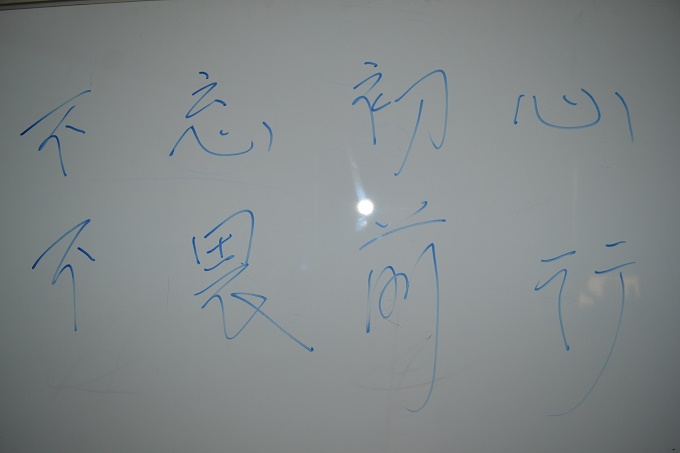 不忘初心
不畏前行